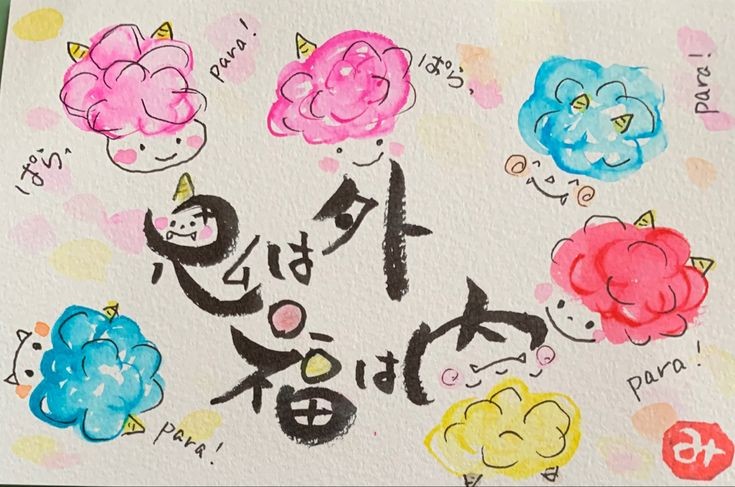 para!
ぱら、
para!
ぱら、
鬼は外
福は内
para!
para!
み